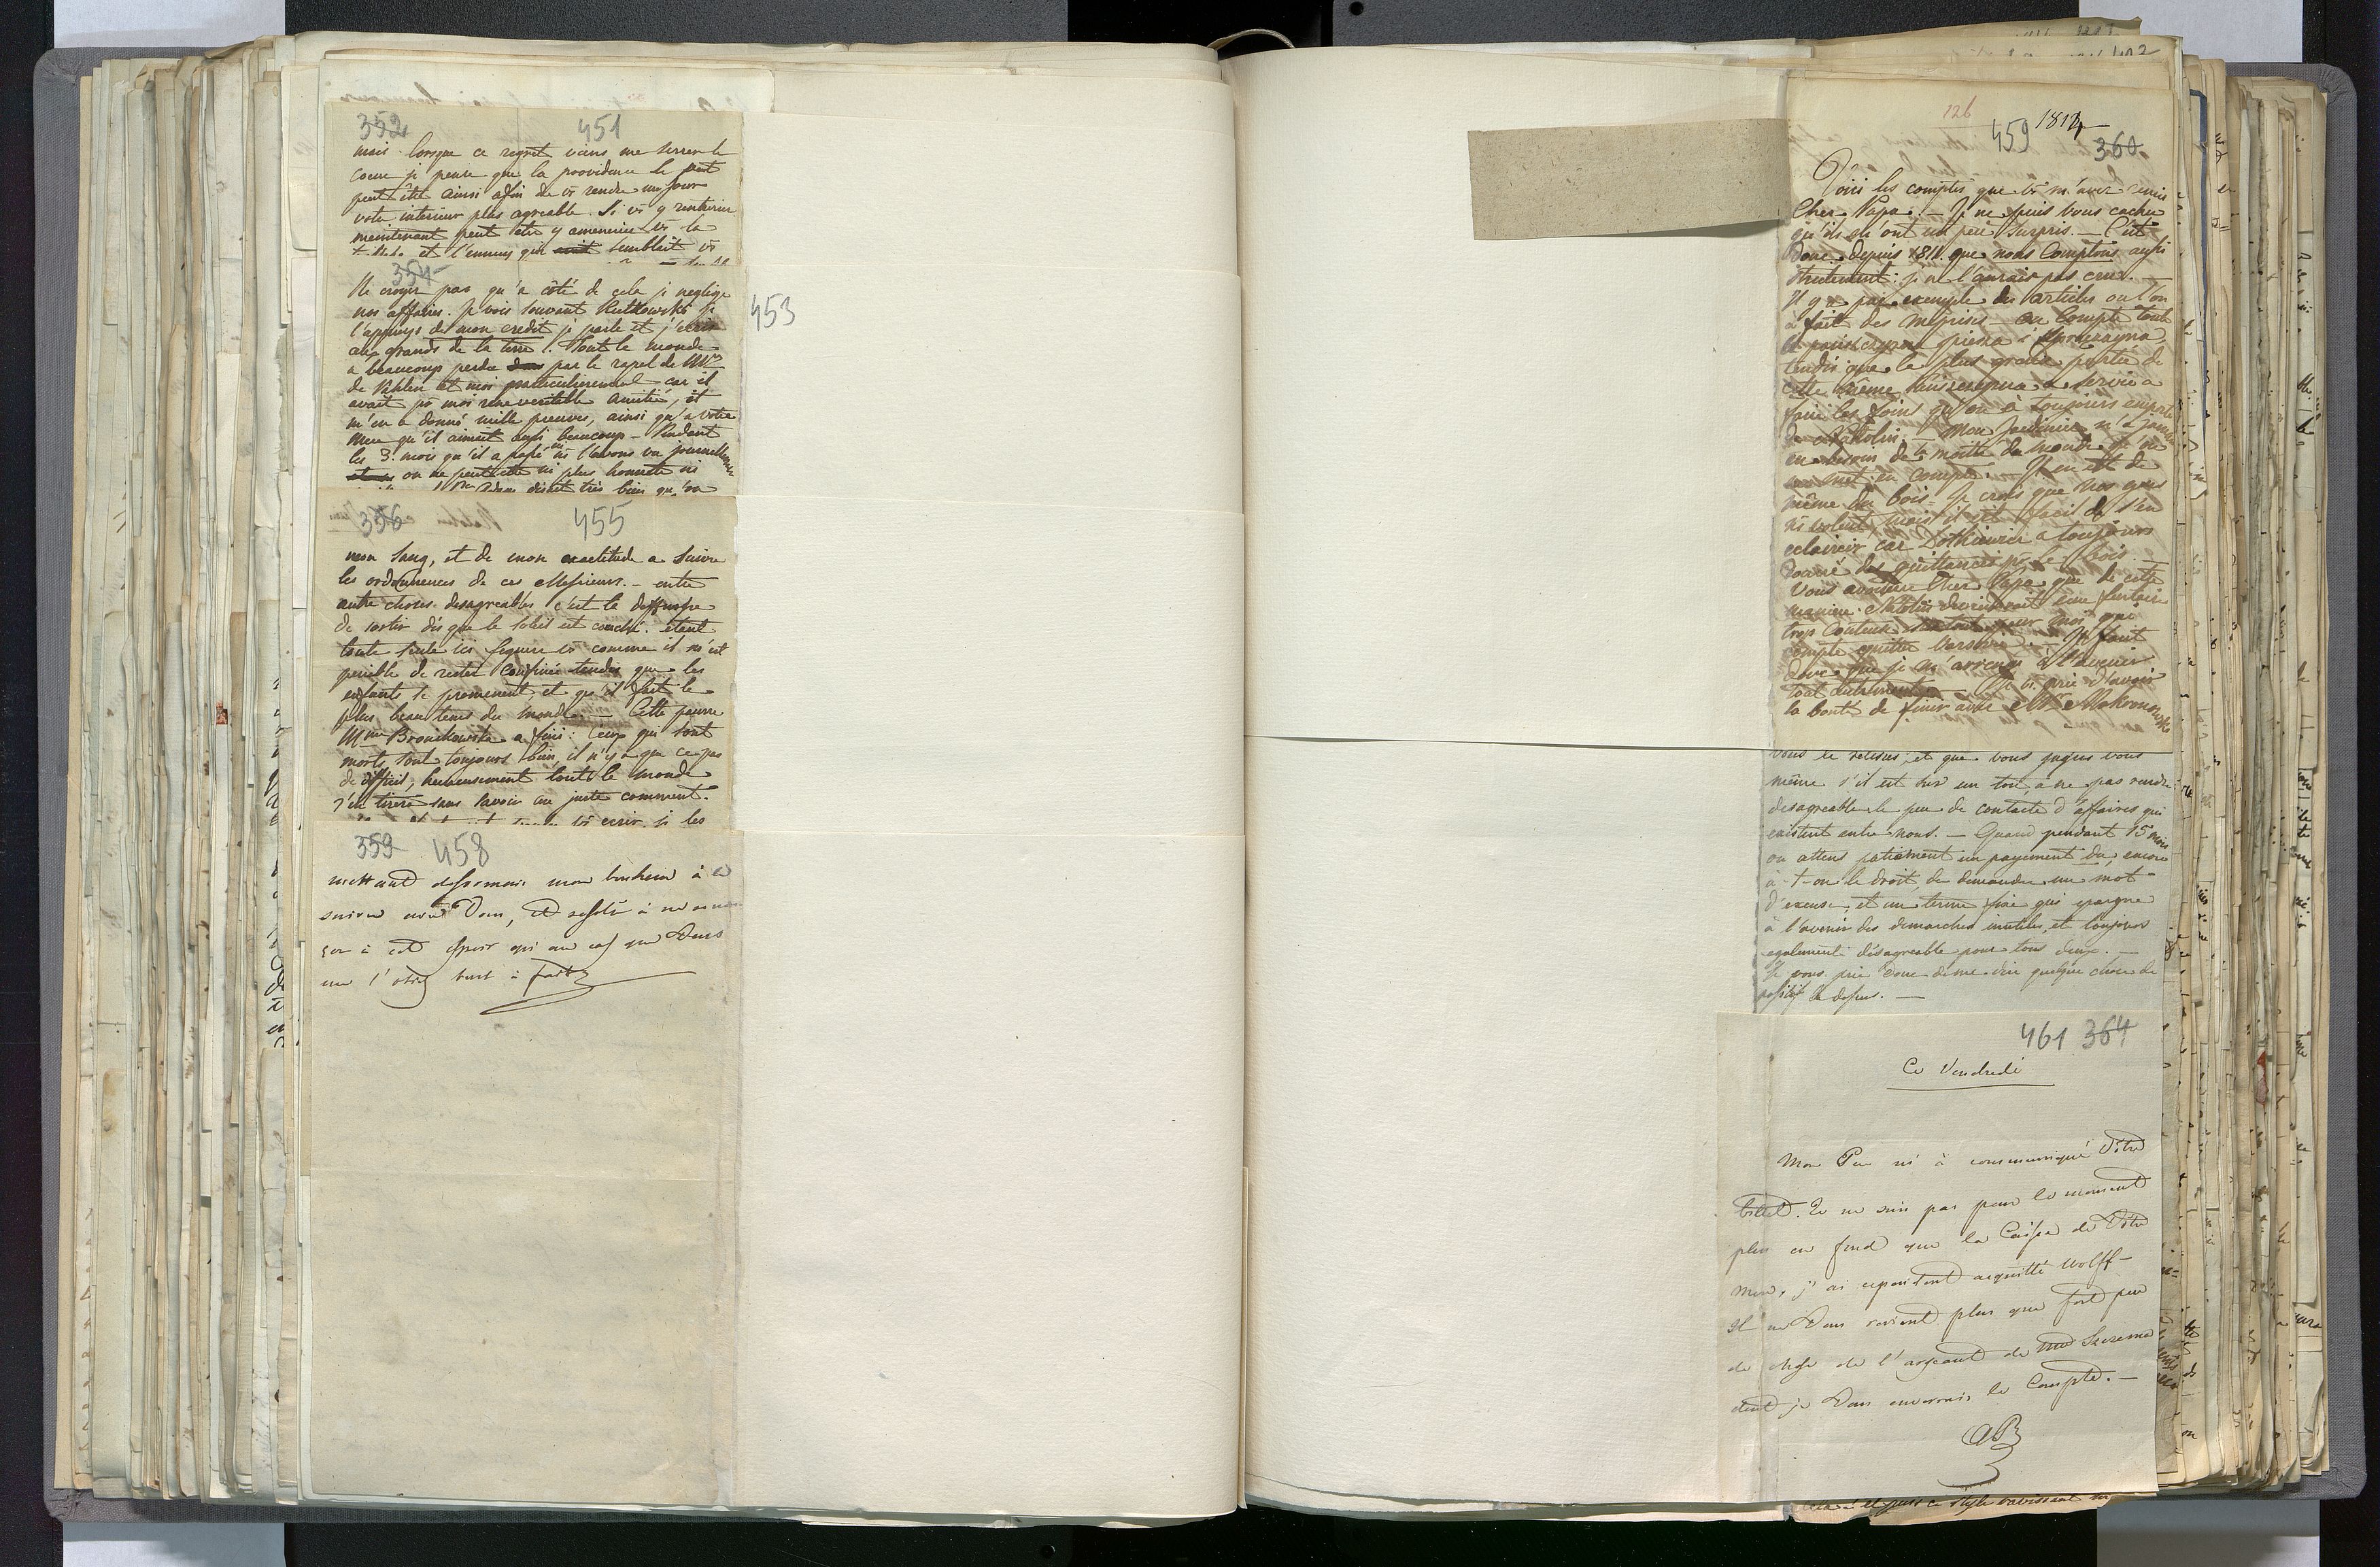 352 451
mais lorsque ce regret viens me serrer le
coeur je pense que la providence le veut
peut être ainsi afin de vs rendre un jour
votre interieur plus agreable. Si vs y rentreriez
maintenant peut etre y ameneriez vs la
et l'ennuy qui semblait vs
354
453
Ne croyez pas qu'a côté de cela je neglige
nos affaires. Je vois souvant Rutkowski je
l'appuye de mon credit je parle et j'ecris
aux grands de la terre! Tout le monde
a beaucoup perdu par le rapel de Mr
de Pahlen et moi particulierement car il
avait pr moi une veritable amitié, et
m'en a donné mille preuves, ainsi qu'a votre
Mere qu'il aimait aussi beaucoup — Pendant
les 3. mois qu'il a passé ns l'avons vu journellement
on ne peut etre ni plus honnete ni
disait très bien qu'on
356 455
mon sang, et de mon exactitude a suivre
les ordonnences de ces Messieurs. — entre
autre choses desagreables c'est la deffense
de sortir dès que le soleil est couché. etant
toute seule ici figurez vs comme il m'est
penible de rester confinée tendis que les
enfants se promenent, et qu'il fait le
plus beau tems du monde. — Cette pauvre
Mme Bronikowska a fini: Ceux qui sont
morts sont toujours bien, il n'y a que ce pas
de difficil, heureusement tout le monde
s'en tirera sans savoir au juste comment.
vs ecrir si les
359 458
mettant desormais mon bonheur à
suivre avec Vous, et resolu à
à cet espoir qu'au cas que Vous
me l'otiez tout à fait
126
459 1814 360
Voici les comptes que vs m'avez remis
Cher Papa. — Je ne puis vous cacher
qu'ils m'ont un peu surpris. — C'est
donc depuis 1811 que nous Comptons aussi
strictement: je ne l'aurais pas cru. —
Il y a par exemple des articles ou l'on
à fait des meprises — on Compte toute
tendis que la plus grande partie de
cette même a servie a
faire les foins qu'on à toujours emporté
de Natolin. — Mon Jardinier n'a jamais
eu besoin de la moitié du monde qu'on
met en compte. Il en est de
même du bois — Je crois que nos gens
ns volent, mais il est facil de s'en
eclaircir car Dothieurer a toujours
donné des quittances pr le bois. —
Vous avouerez Cher Papa que de cette
maniere Natolin deviendrait une fantaisie
trop Couteuse surtout pour moi qui
compte quitter Varsovie. — Il faut
donc que je m'arrenge à l'avenir
tout autrement. — Je vs prie d'avoir
la bonté de finir avec Mr Mokronowski
vous le relisiez, et que vous jugiez vous
même s'il est sur un ton, a ne pas rendre
desagreable le peu de contacte d'affaires qui
existent entre nous. — Quand pendant 15 mois
on attens patiament un payement du, encore
a-t-on le droit, de demander un mot
d'excuse, et un terme fixe qui epargne
à l'avenir des demarches inutiles, et toujours
egalement désagreable pour tous deux. —
Je vous prie donc de me dire quelque chose de
positif la dessus. —
461 364
Ce Vendredi
Mon Pere m'à communiqué Vôtre
billet. Je ne suis pas pour le moment
plus en fond que la Caisse de Vôtre
Mere, j'ai cependant acquitté Wolff —
Il ne Vous revient plus que fort peu
de chose de l'argeant de
dont je Vous enverrais le Compte. —
AP